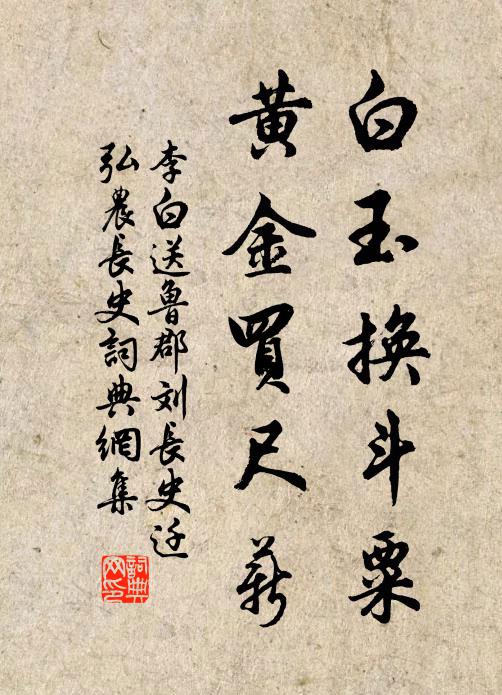 白玉換斗粟
黃金買尺薪
李白送魯郡刘長史迁
弘農長史詞典網集
詞典
网印